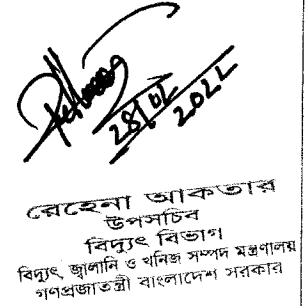 28/02/2022
রেহেনা আকতার
উপসচিব
বিদ্যুৎ বিভাগ
বিদ্যুৎ, জ্বালানি ও খনিজ সম্পদ মন্ত্রণালয়
গণপ্রজাতন্ত্রী বাংলাদেশ সরকার